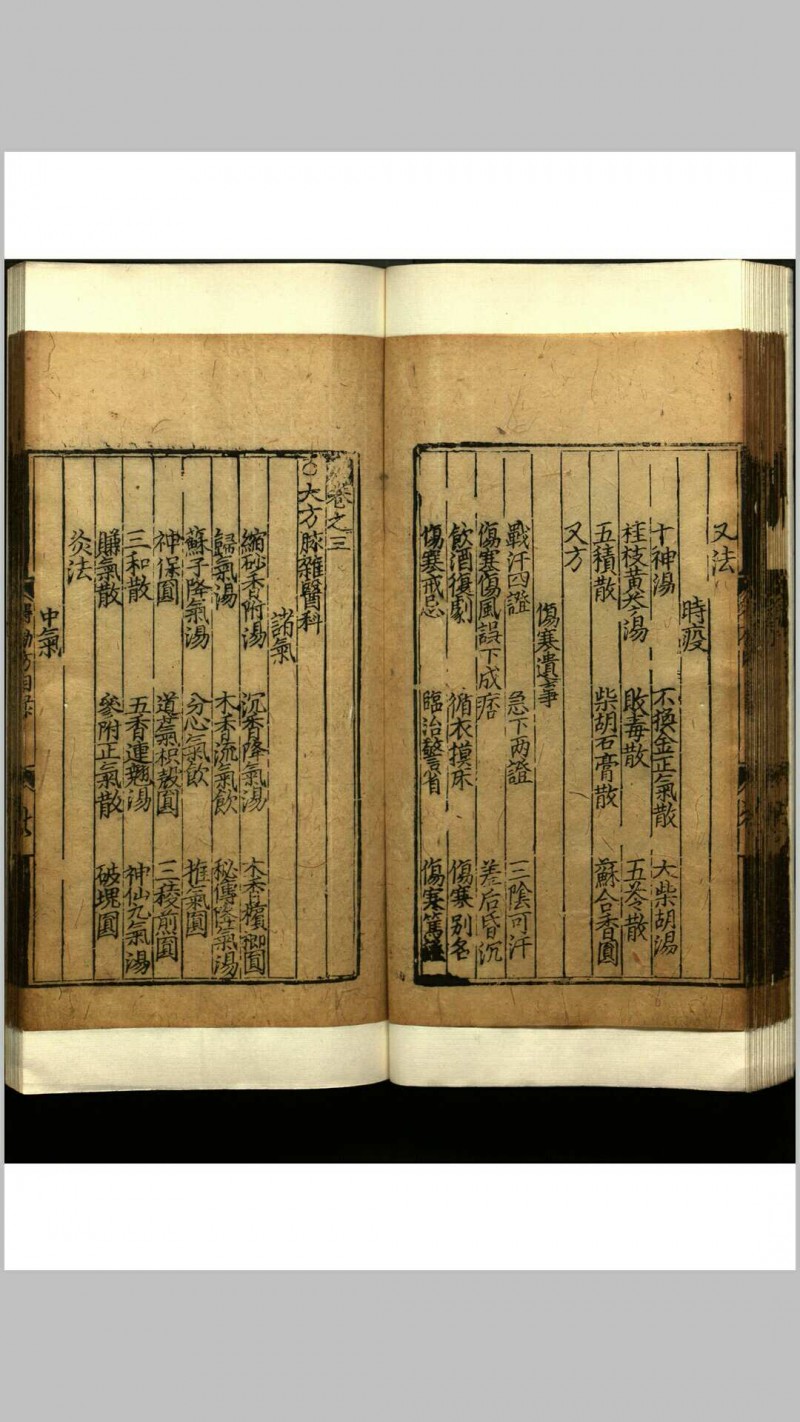 又法
時疫
十神湯 不換金正氣散 大柴胡湯
桂枝黃芩湯 敗毒散 五苓散
五積散 柴胡石膏散 蘇合香圓
又方
傷寒遺事
戰汗四證 急下兩證 三陰可汗
傷寒傷風誤下成痞 差后昏沉
飲酒復劇 循衣摸床 傷寒別名
傷寒戒忌 臨治警省 傷寒篤證
卷之三
○大方脉雜醫科
諸氣
縮砂香附湯 沉香降氣湯 木香檳榔圓
歸氣湯 木香流氣飲 秘傳降氣湯
蘇子降氣湯 分心氣飲 推氣圓
神保圓 導氣枳殼圓 三稜煎圓
三和散 五香連翹湯 神仙九氣湯
鷄氣散 參附正氣散 破塊圓
灸法
中氣